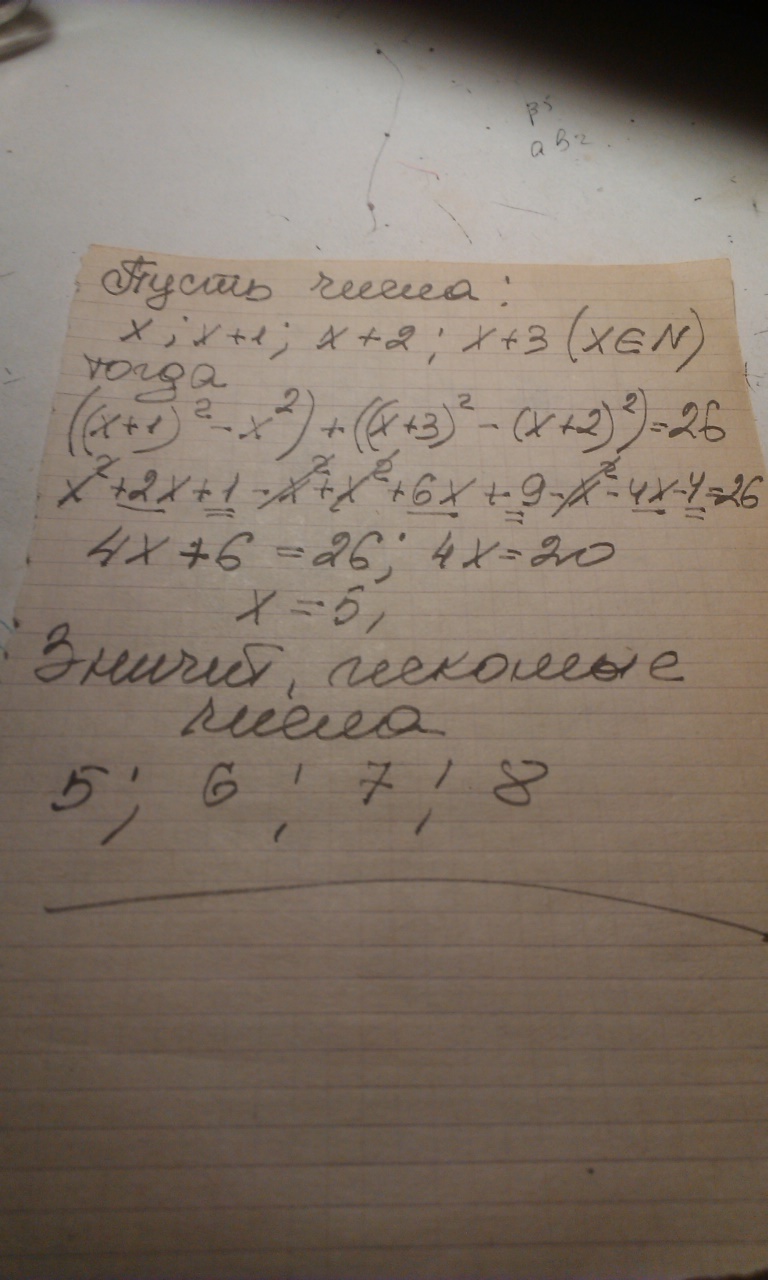 ав²
Пусть числа:
x; x+1; x+2; x+3 (x∈N)
тогда
((x+1)²-x²)+((x+3)²-(x+2)²)=26
x²+2x+1-x²+x²+6x+9-x²-4x-4=26
4x+6=26; 4x=20
x=5,
Значит, искомые
числа
5; 6; 7; 8